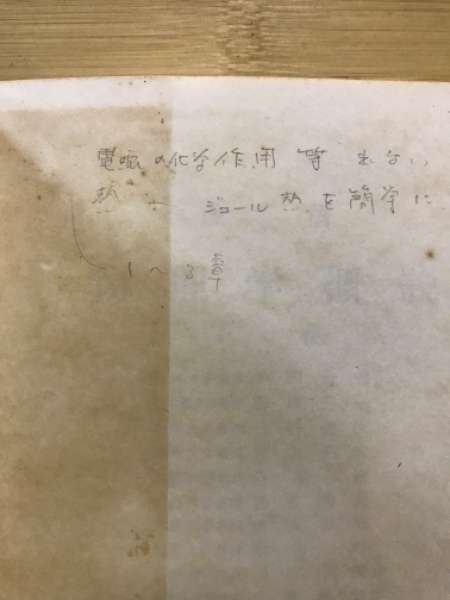 電磁の化学作用 等 出ない
熱 ＋ ジュール熱 を簡単に
1〜3章